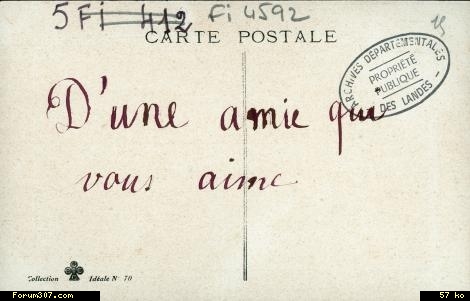 5 Fi 412 Fi 4592
15
CARTE POSTALE
ARCHIVES DÉPARTEMENTALES
PROPRIÉTÉ
PUBLIQUE
DES LANDES
D'une amie qui
vous aime
Collection Idéale N° 70
Forum307.com
57 ko